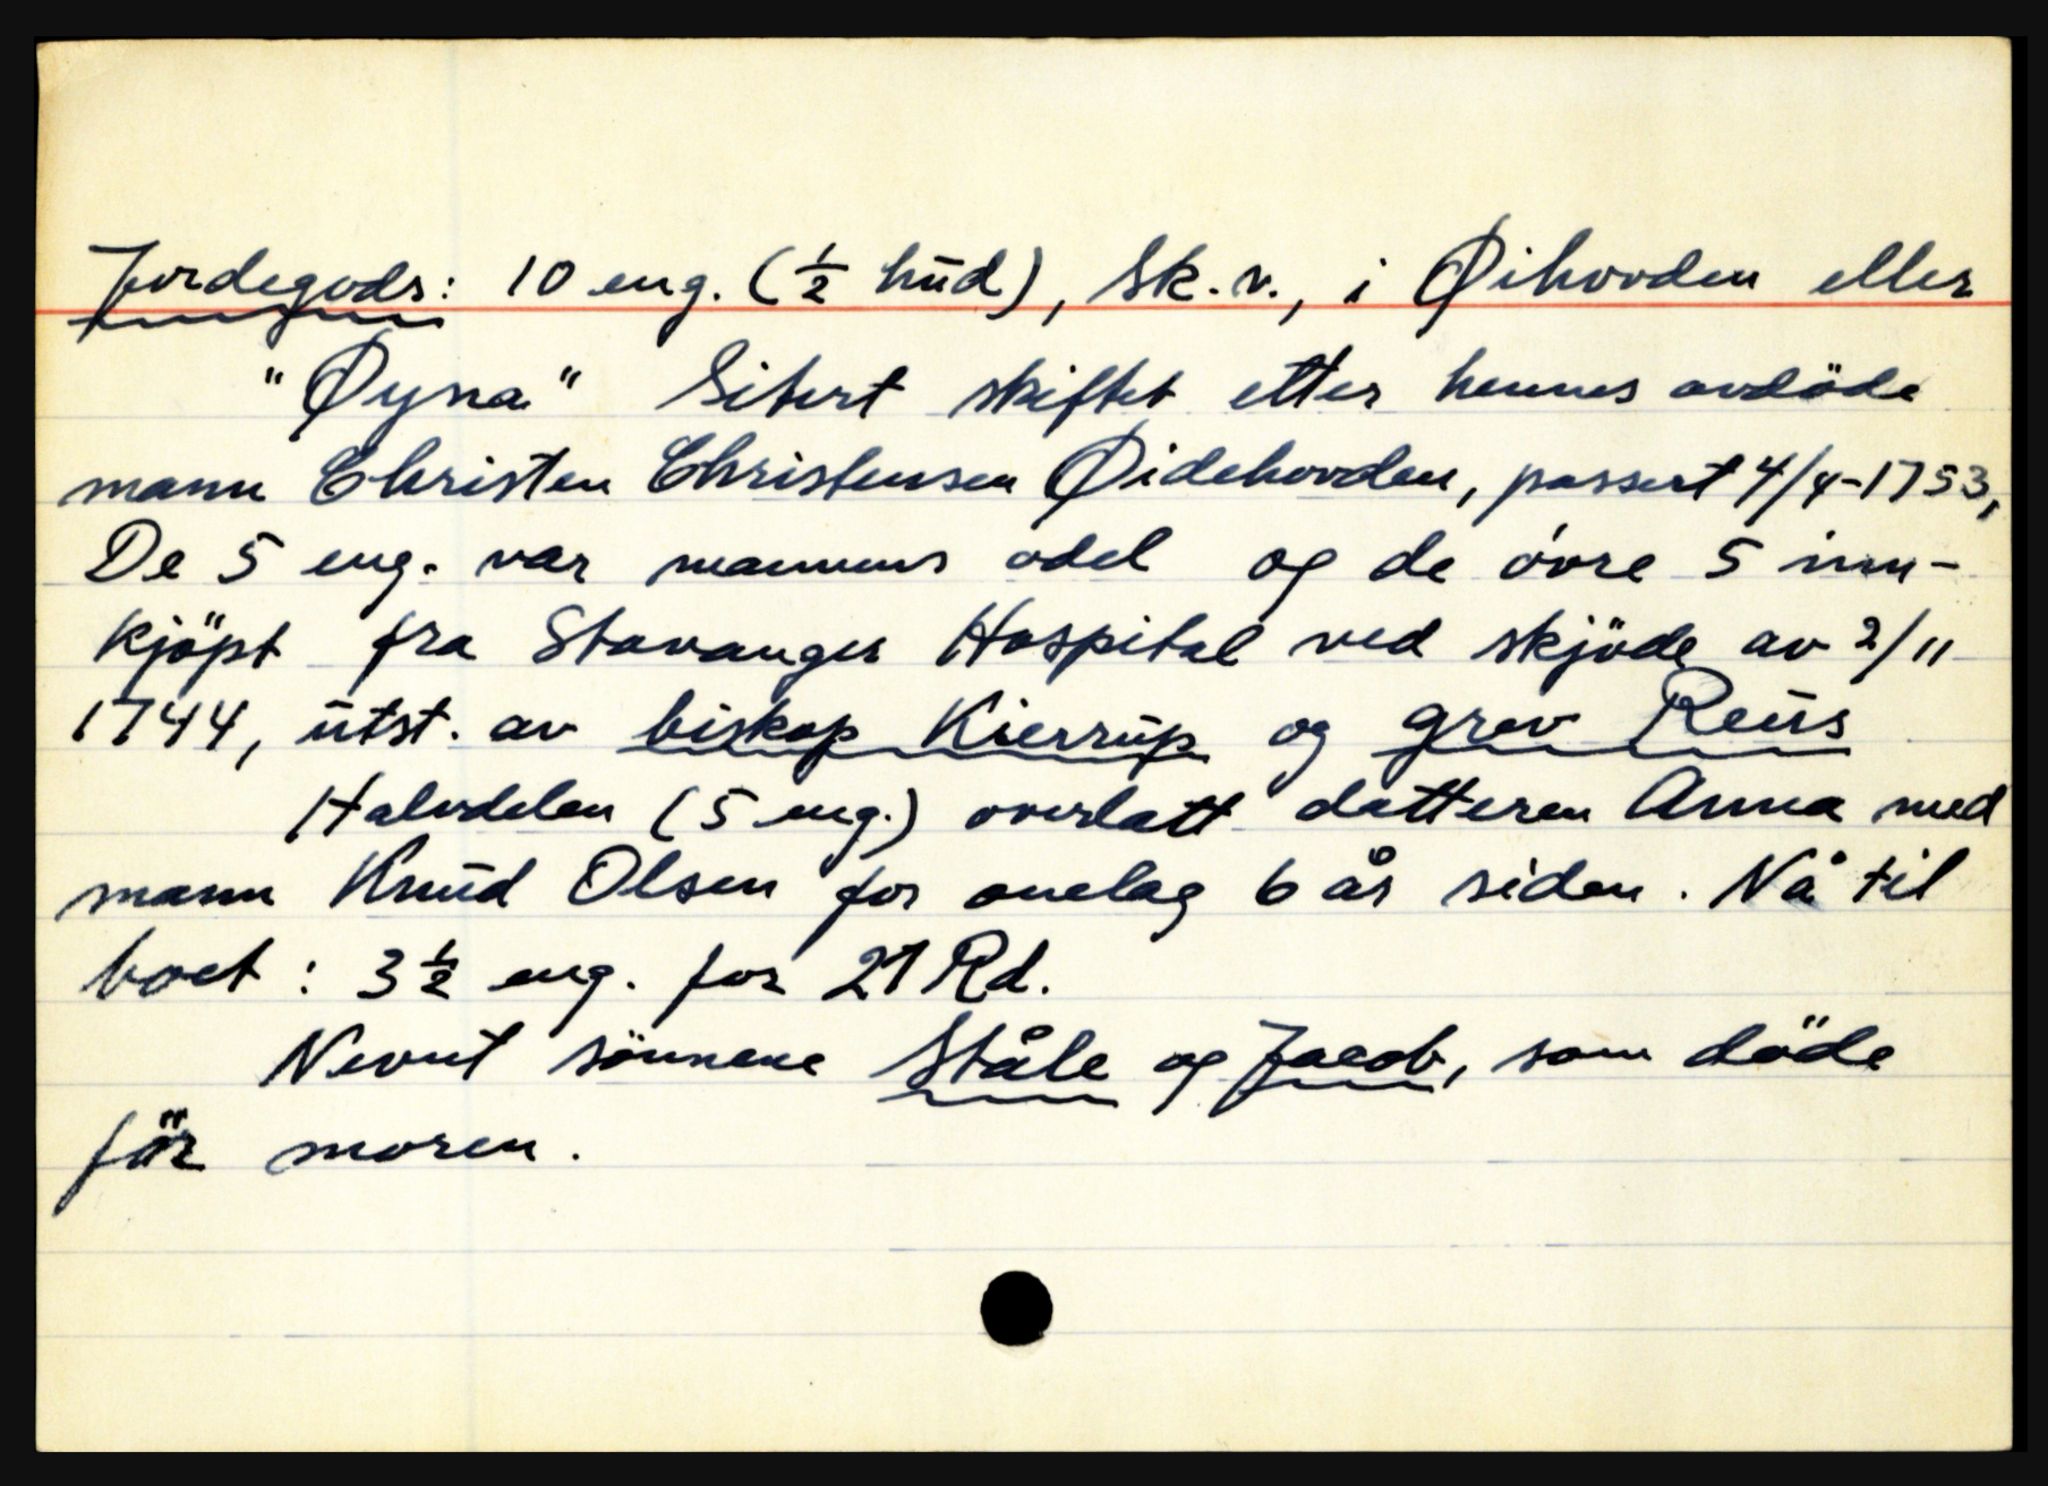 Jordegods: 10 eng. (½ hud), Sk. v., i Øihovden eller
"Øyna" Sitert skiftet etter hennes avdöde
mann Christen Christensen Øidehovden, passert 4/4-1753,
De 5 eng. var mannens odel og de övre 5 inn-
kjöpt fra Stavanger Hospital ved skjöde av 2/11
1744, utst. av biskop Kierrup og grev Reus
Halvdelen (5 eng.) overlatt datteren Anna med
mann Knud Olsen for omelag 6 år siden. Nå til
boet: 3½ eng. for 21 Rd.
Nevnt sönnene Ståle og Jacob, som döde
för moren.